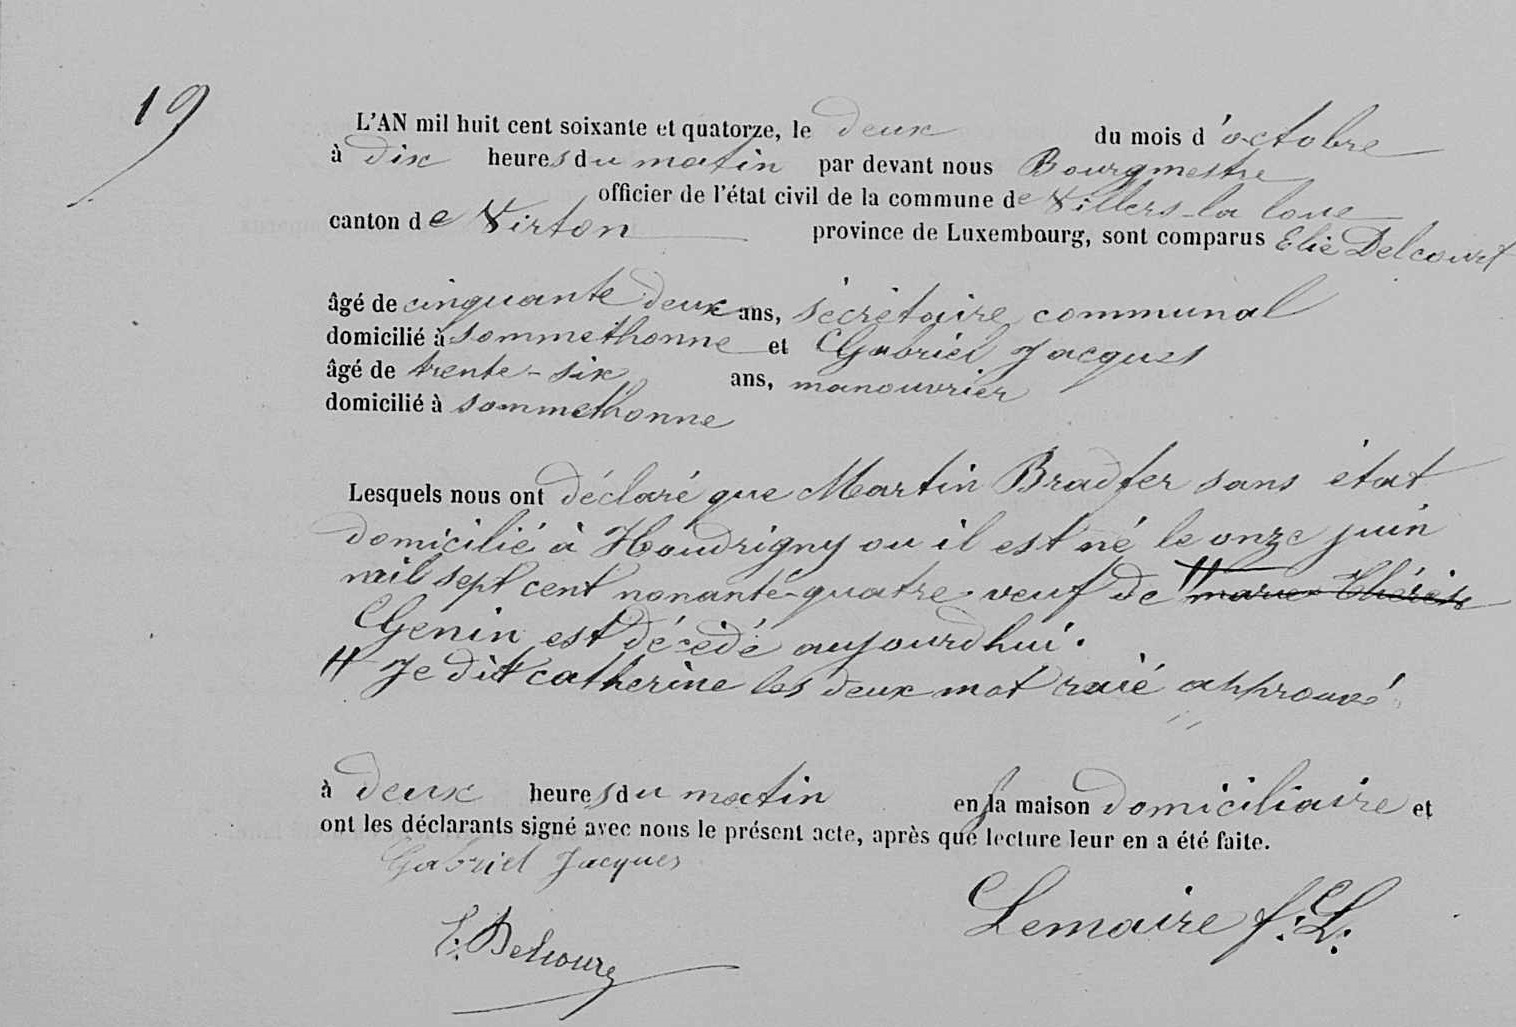 19
L'AN mil huit cent soixante et quatorze, le deux du mois d'octobre
à dix heures du matin par devant nous Bourgmestre
officier de l'état civil de la commune de Villers-la loue
canton de Virton province de Luxembourg, sont comparus Elie Delcourt
âgé de cinquante deux ans, sécrétaire communal
domicilié à Sommethonne et Gabriel Jacques
âgé de trente-six ans, manouvrier
domicilié à sommethonne
Lesquels nous ont déclaré que Martin Bradfer sans état
domicilié à Houdrigny ou il est né le onze juin
mil sept cent nonante-quatre veuf de # marie Thérèse
Genin est décédé aujourdhui.
# Je dit catherine les deux mot raié approuvé
à deux heures du matin en sa maison domiciliaire et
ont les déclarants signé avec nous le présent acte, après que lecture leur en a été faite.
Gabriel Jacques
E. Delcourt
Lemaire f. L.